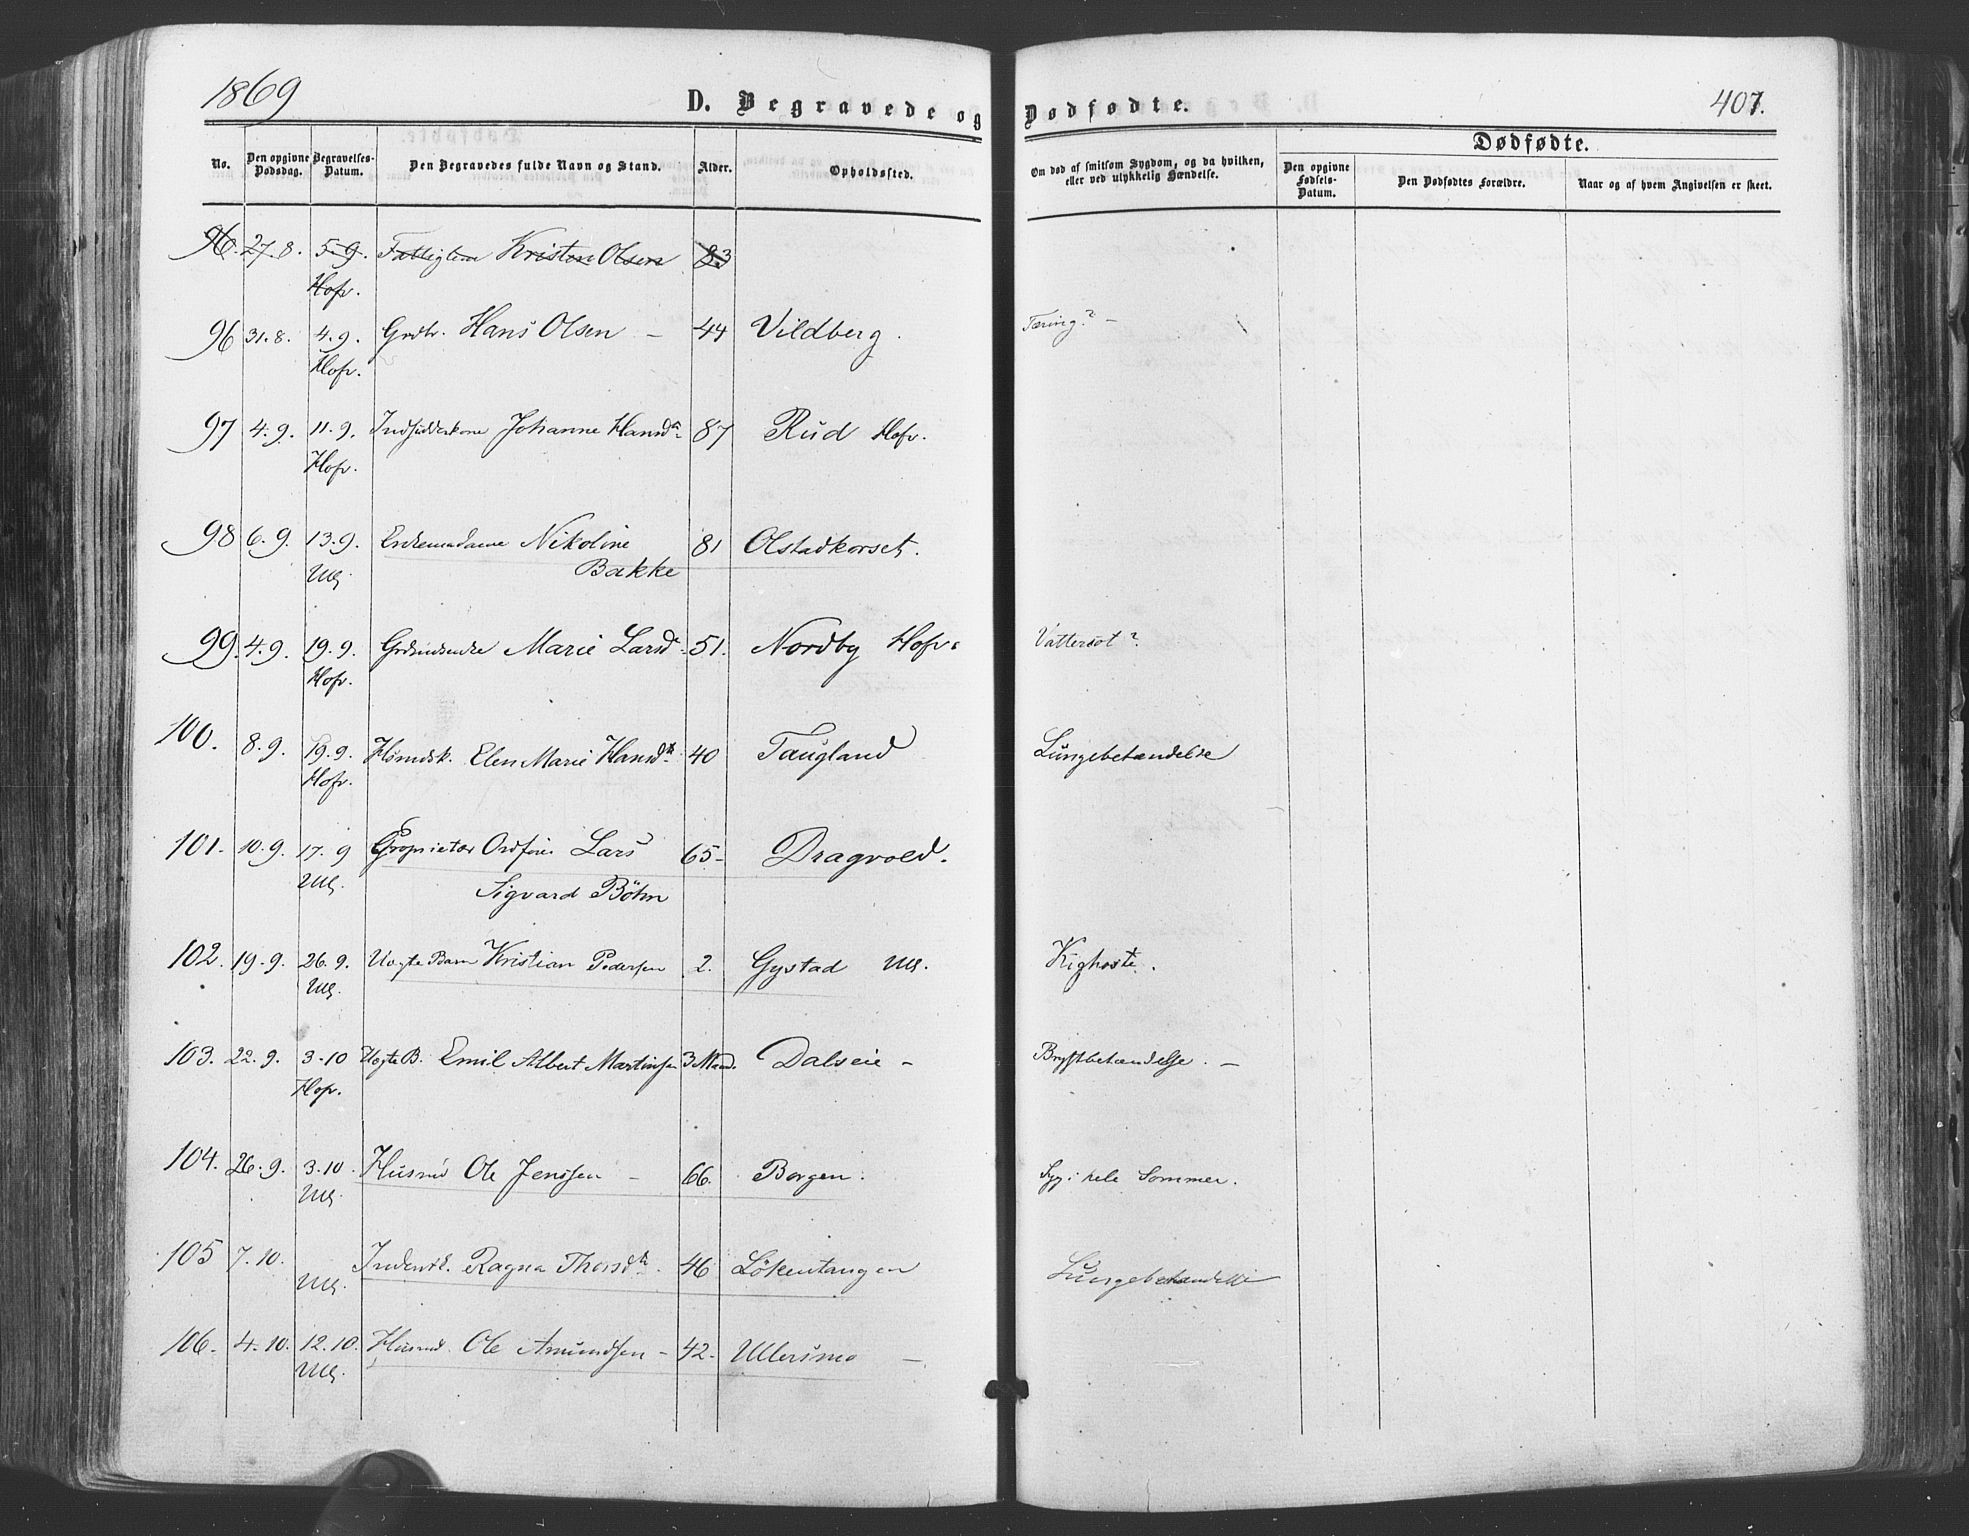 1869
D. Begravede og Dødfødte.
407.
No.
Den opgivne Dødsdag.
Begravelses-Datum.
Den Begravedes fulde Navn og Stand.
Alder.
Opholdssted.
Om død af smitsom Sygdom, og da hvilken, eller ved ulykkelig Hændelse.
Dødfødte.
Den opgivne Fødsels-Datum.
Den Dødfødtes Forældre.
Naar og af hvem Angivelsen er skeet.
96. 27.8. 5.9. Fattiglem Kristen Olsen 83
Hofv.
96 31.8. 4.9. Grdbr. Hans Olsen – 44 Vildberg. Tæring? –
Hofv.
97 4.9. 11.9. Indsidderkone Johanne Hansd. 87 Rud Hofv.
Hofv.
98 6.9. 13.9. Enkemadame Nikoline 81 Olstadkorset.
Ull. Bakke
99. 4.9. 19.9. Marie Larsd. 51. Nordby Hofv. Vattersot?
Hofv.
100. 8.9. 19.9. Elen Marie Hansd. 40 Taugland Lungebetændelse
Hofv.
101. 10.9. 17.9 Proprietær Lars 65– Dragvold.
Ull. Sigvard Böhn
102. 19.9. 26.9. Uægte Barn Kristian Pedersen 2. Gystad Ull. Kighoste.
Ull.
103. 22.9. 3-10 Uægte B. Emil Albert Martinsen 3 Maan. Dalseie – Brystbetændelse. –
Hofv.
104. 26.9. 3.10 Husmd Ole Jenssen – 66. Borgen. Syg i hele Sommer.
Ull.
105 7.10. Ragna Thorsd. 46 Lökentangen Lungebetændelse
Ull.
106. 4.10. 12.10. Husmd. Ole Amundsen – 42. Ullersmo –
Ull.